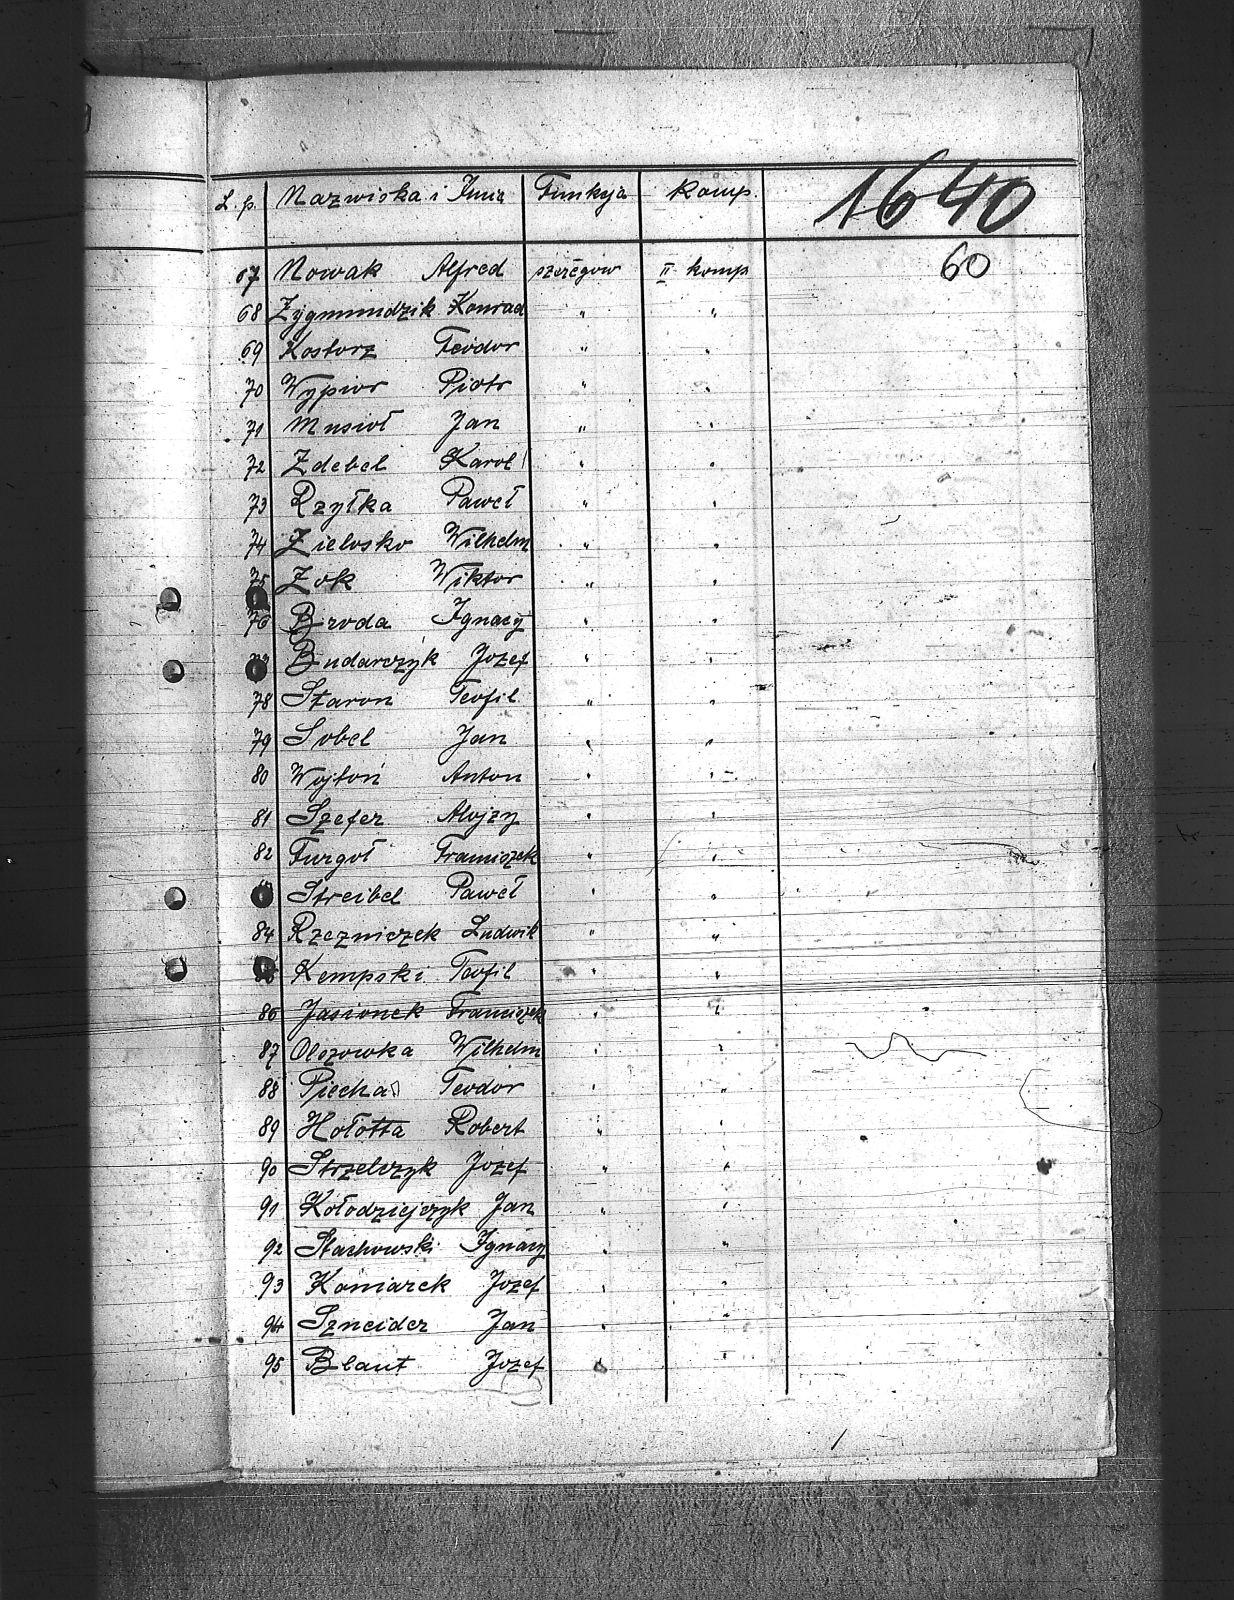 L. p. Nazwiska i Imię Funkcja Komp. 1640
60
67 Nowak Alfred szeregow II komp
68 Zygmundzik Konrad " "
69 Kostorz Teodor " "
70 Wypior Piotr " "
71 Musioł Jan " "
72 Zdebel Karol " "
73 Rzyłka Paweł " "
74 Zielosko Wilhelm " "
75 Zok Wiktor " "
76 Broda Ignacy " "
Budarczyk Jozef " "
78 Staroń Teofil " "
79 Sobel Jan " "
80 Wojtoń Anton " "
81 Szefer Alojzy " "
82 Furgoł Franciszek " "
Streibel Paweł " "
84 Rzezniczek Ludwik " "
Kempski Teofil " "
86 Jasionek Franciszek " "
87 Olszowka Wilhelm " "
88 Piecha Teodor " "
89 Hołotta Robert " "
90 Strzelczyk Jozef " "
91 Kołodziejczyk Jan " "
92 Stachowski Ignacy " "
93 Koniarek Jozef " "
94 Szneider Jan " "
95 Blaut Jozef " "